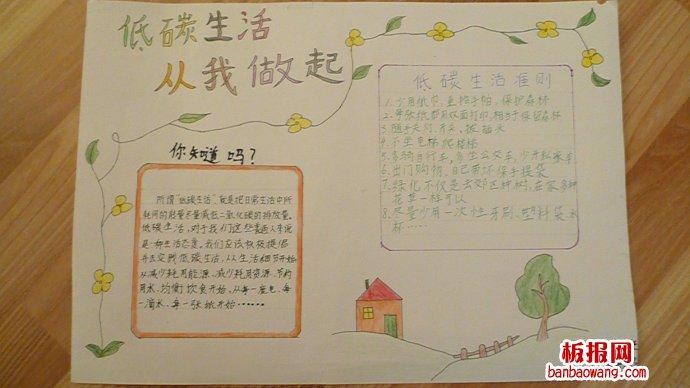 低碳生活
从我做起
你知道吗?
所谓“低碳生活”就是把日常生活中所
耗用的能量尽量减低二氧化碳的排放量。
低碳生活,对于我们这些普通人来说
是一种生活态度。我们应该积极提倡
并去实践低碳生活,从生活细节开始
从减少耗用能源、减少耗用资源、节约
用水、均衡饮食开始,从每一度电、每
一滴水、每一张纸开始……
低碳生活准则
1.少用纸巾,重拾手帕,保护森林
2.每张纸都用双面打印,相当于保留森林
3.随手关灯、开关、拔插头
4.不坐电梯爬楼梯
5.多骑自行车,多坐公交车,少开私家车
6.出门购物,自己带环保手提袋
7.绿化不仅是去郊区种树,在家多种
花草一样可以
8.尽量少用一次性牙刷、塑料袋、水
杯……
板报网
banbaowang.com